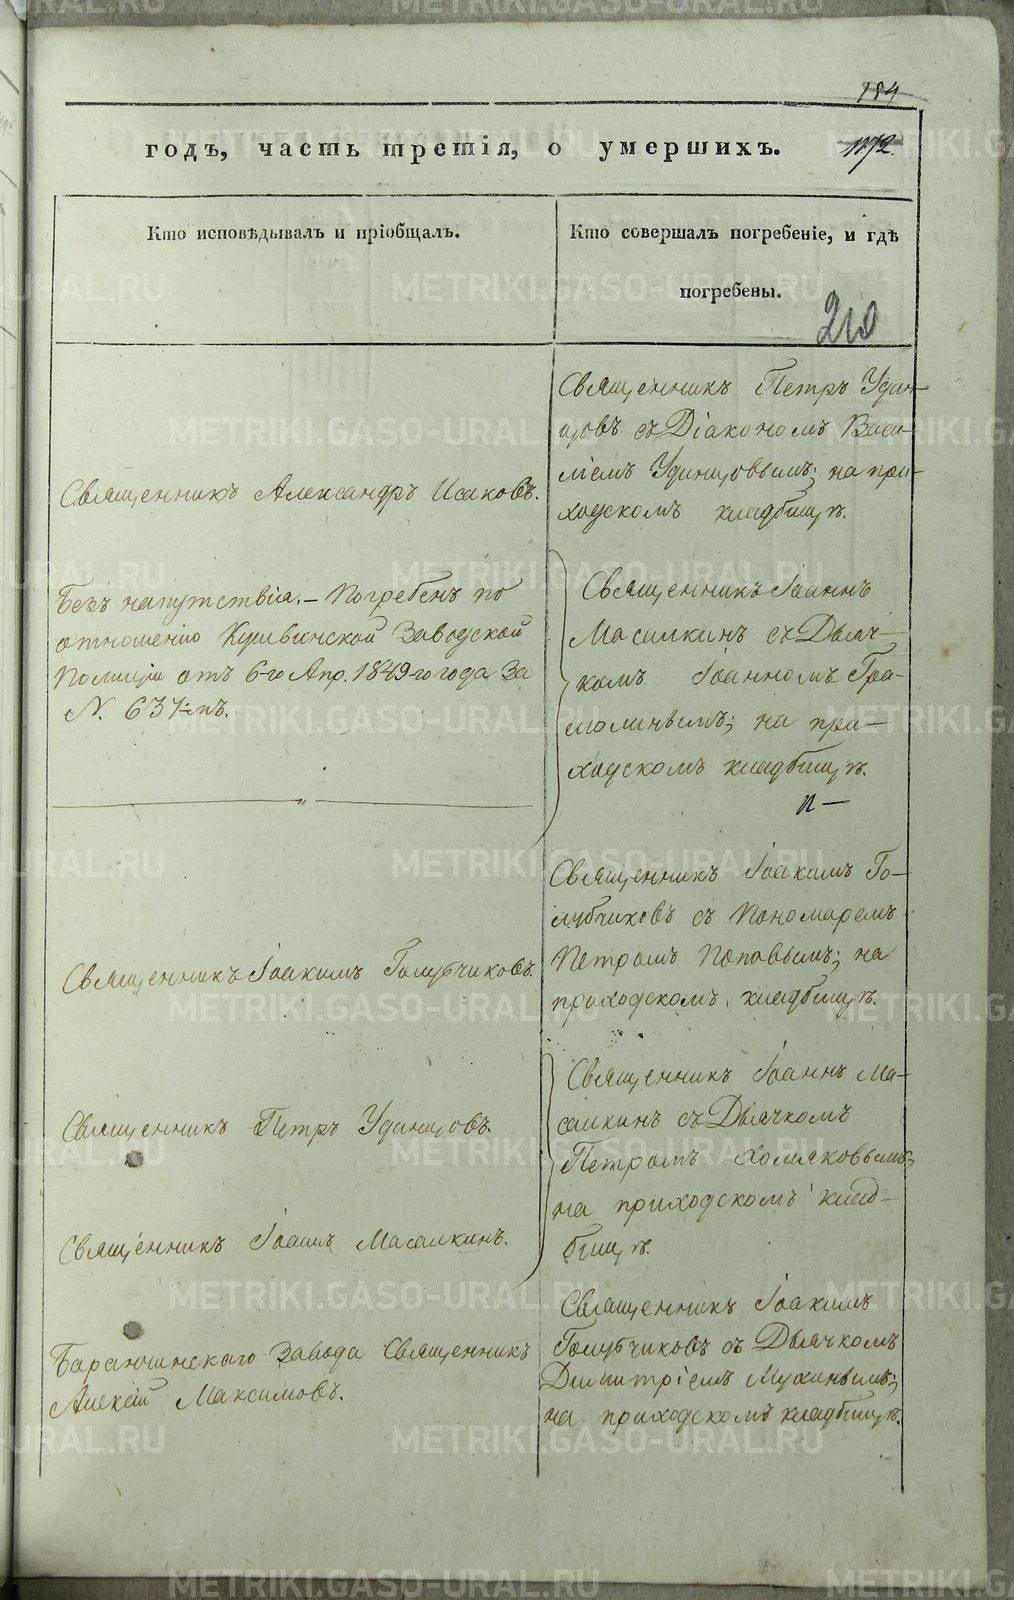 184
годъ, часть третія, о умершихъ.
1172.
Кто исповѣдывалъ и пріобщалъ.
Кто совершалъ погребеніе, и гдѣ
погребены.
210
Священникъ Александръ Исаковъ.
Священникъ Петръ Удин-
цовъ съ Діакономъ Васи-
ліемъ Удинцовымъ; на при-
ходскомъ кладбищѣ.
Безъ напутствія. – Погребенъ по
отношенію Кушвинской Заводской
Полиціи отъ 6-го Апр. 1849-го года за
N. 637-мъ.
Священникъ Іоаннъ
Масалкинъ съ Дьяч-
комъ Іоанномъ Гра-
молинымъ; на при-
ходскомъ кладбищѣ.
Священникъ Іоакимъ Голубчиковъ.
Священникъ Іоакимъ Го-
лубчиковъ съ Пономаремъ
Петромъ Поповымъ; на
приходскомъ кладбищѣ.
Священникъ Петръ Удинцовъ.
Священникъ Іоаннъ Масалкинъ.
Священникъ Іоаннъ Ма-
салкинъ съ Дьячкомъ
Петромъ Холмяковымъ;
на приходскомъ клад-
бищѣ.
Баранчинскаго Завода Священникъ
Алексій Максимовъ.
Священникъ Іоакимъ
Голубчиковъ съ Дьячкомъ
Димитріемъ Мухинымъ;
на приходскомъ кладбищѣ.
METRIKI.GASO-URAL.RU